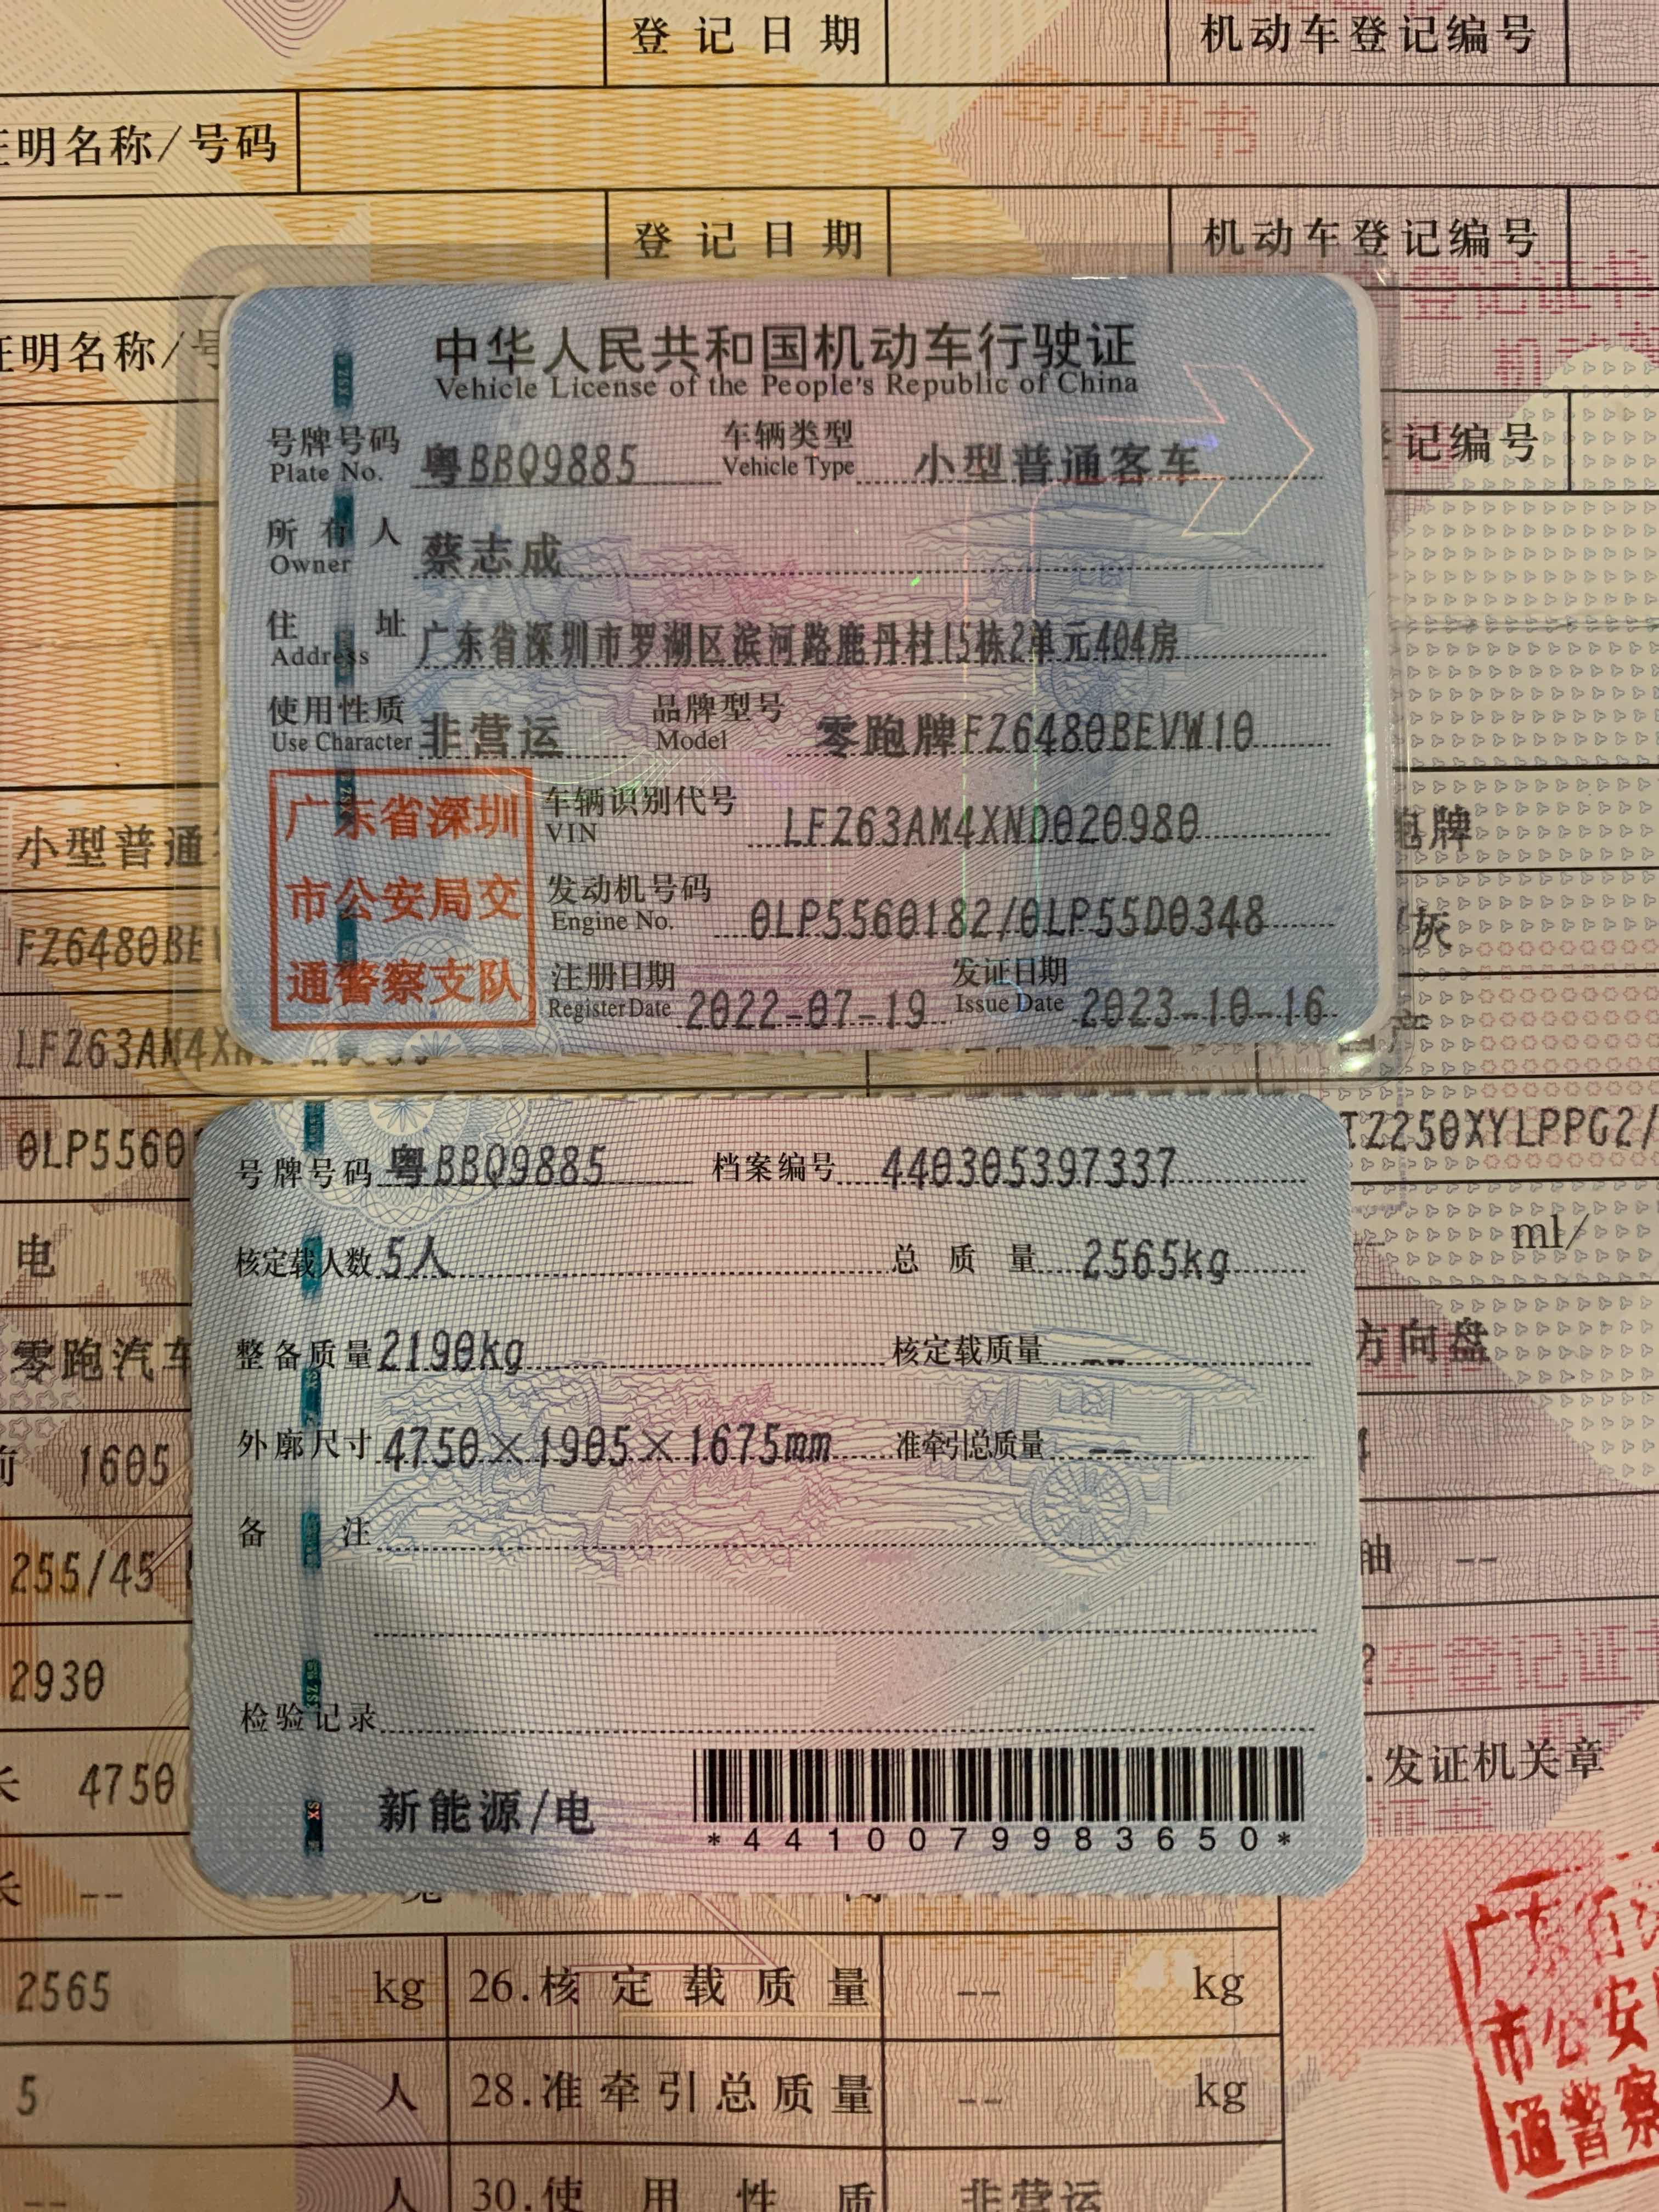 登记日期 机动车登记编号
证明名称/号码
登记证书
登记日期 机动车登记编号
登记证书
证明名称/号
中华人民共和国机动车行驶证
Vehicle License of the People's Republic of China
登记编号
号牌号码 粤BBQ9885 车辆类型 小型普通客车
Plate No. Vehicle Type
所有人 蔡志成
Owner
住址 广东省深圳市罗湖区滨河路鹿丹村15栋2单元404房
Address
使用性质 非营运 品牌型号 零跑牌FZ6480BEVW10
Use Character Model
广东省深圳
市公安局交
通警察支队
车辆识别代号 LFZ63AM4XND020980
VIN
发动机号码 0LP5560182/0LP55D0348
Engine No.
注册日期 2022-07-19 发证日期 2023-10-16
Register Date Issue Date
小型普通
跑牌
FZ6480BEV
灰
LFZ63AM4XN
0LP5560
TZ250XYLPPG2/
号牌号码 粤BBQ9885 档案编号 440305397337
电
ml/
核定载人数 5人 总质量 2565kg
零跑汽车
方向盘
整备质量 2190kg 核定载质量 --
前 1605
外廓尺寸 4750×1905×1675mm 准牵引总质量 --
255/45
轴 --
备注
2930
检验记录
长 4750
发证机关章
新能源/电
*4410079983650*
长 --
2565 kg 26.核定载质量 -- kg
5 人 28.准牵引总质量 -- kg
-- 人 30.使用性质 非营运
市公安
通警察